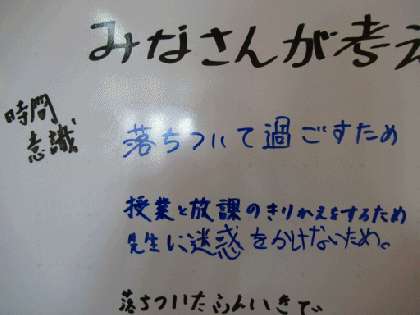 みなさんが考え
時間
意識
落ちついて過ごすため
授業と放課のきりかえをするため
先生に迷惑をかけないため。
落ちついたふんいきで